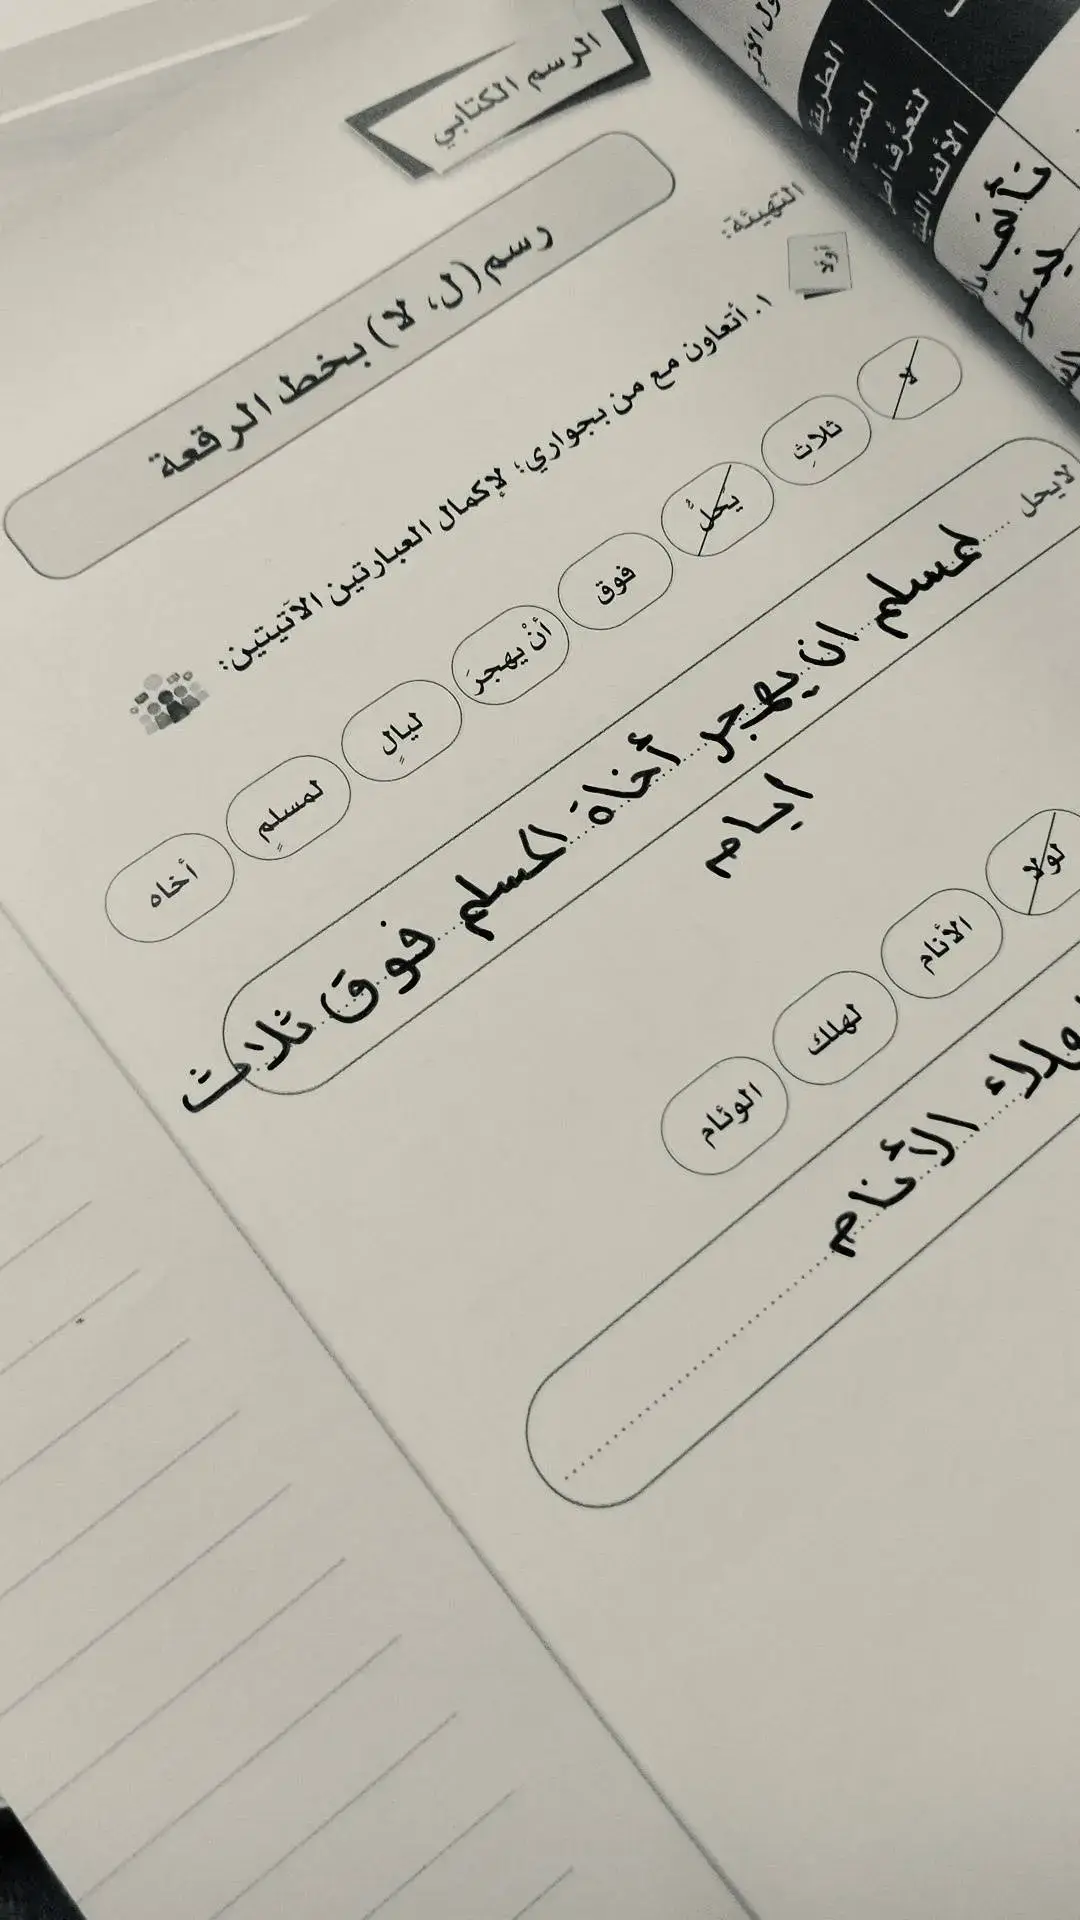 الرسم الكتابي
رسم (ل، لا) بخط الرقعة
التهيئة:
١. أتعاون مع من بجواري؛ لإكمال العبارتين الآتيتين:
لا
ثلاثِ
يَحلُّ
فوق
أنْ يهجرَ
ليالٍ
لمسلمٍ
أخاه
لايحل
لمسلم ان يهجر أخاة المسلم فوق ثلاث
أيام
لولا
الأنام
لهلك
الوئام
الأنام
الطريقة
المتبعة
لتعرُّف أصل
الألف اللينة